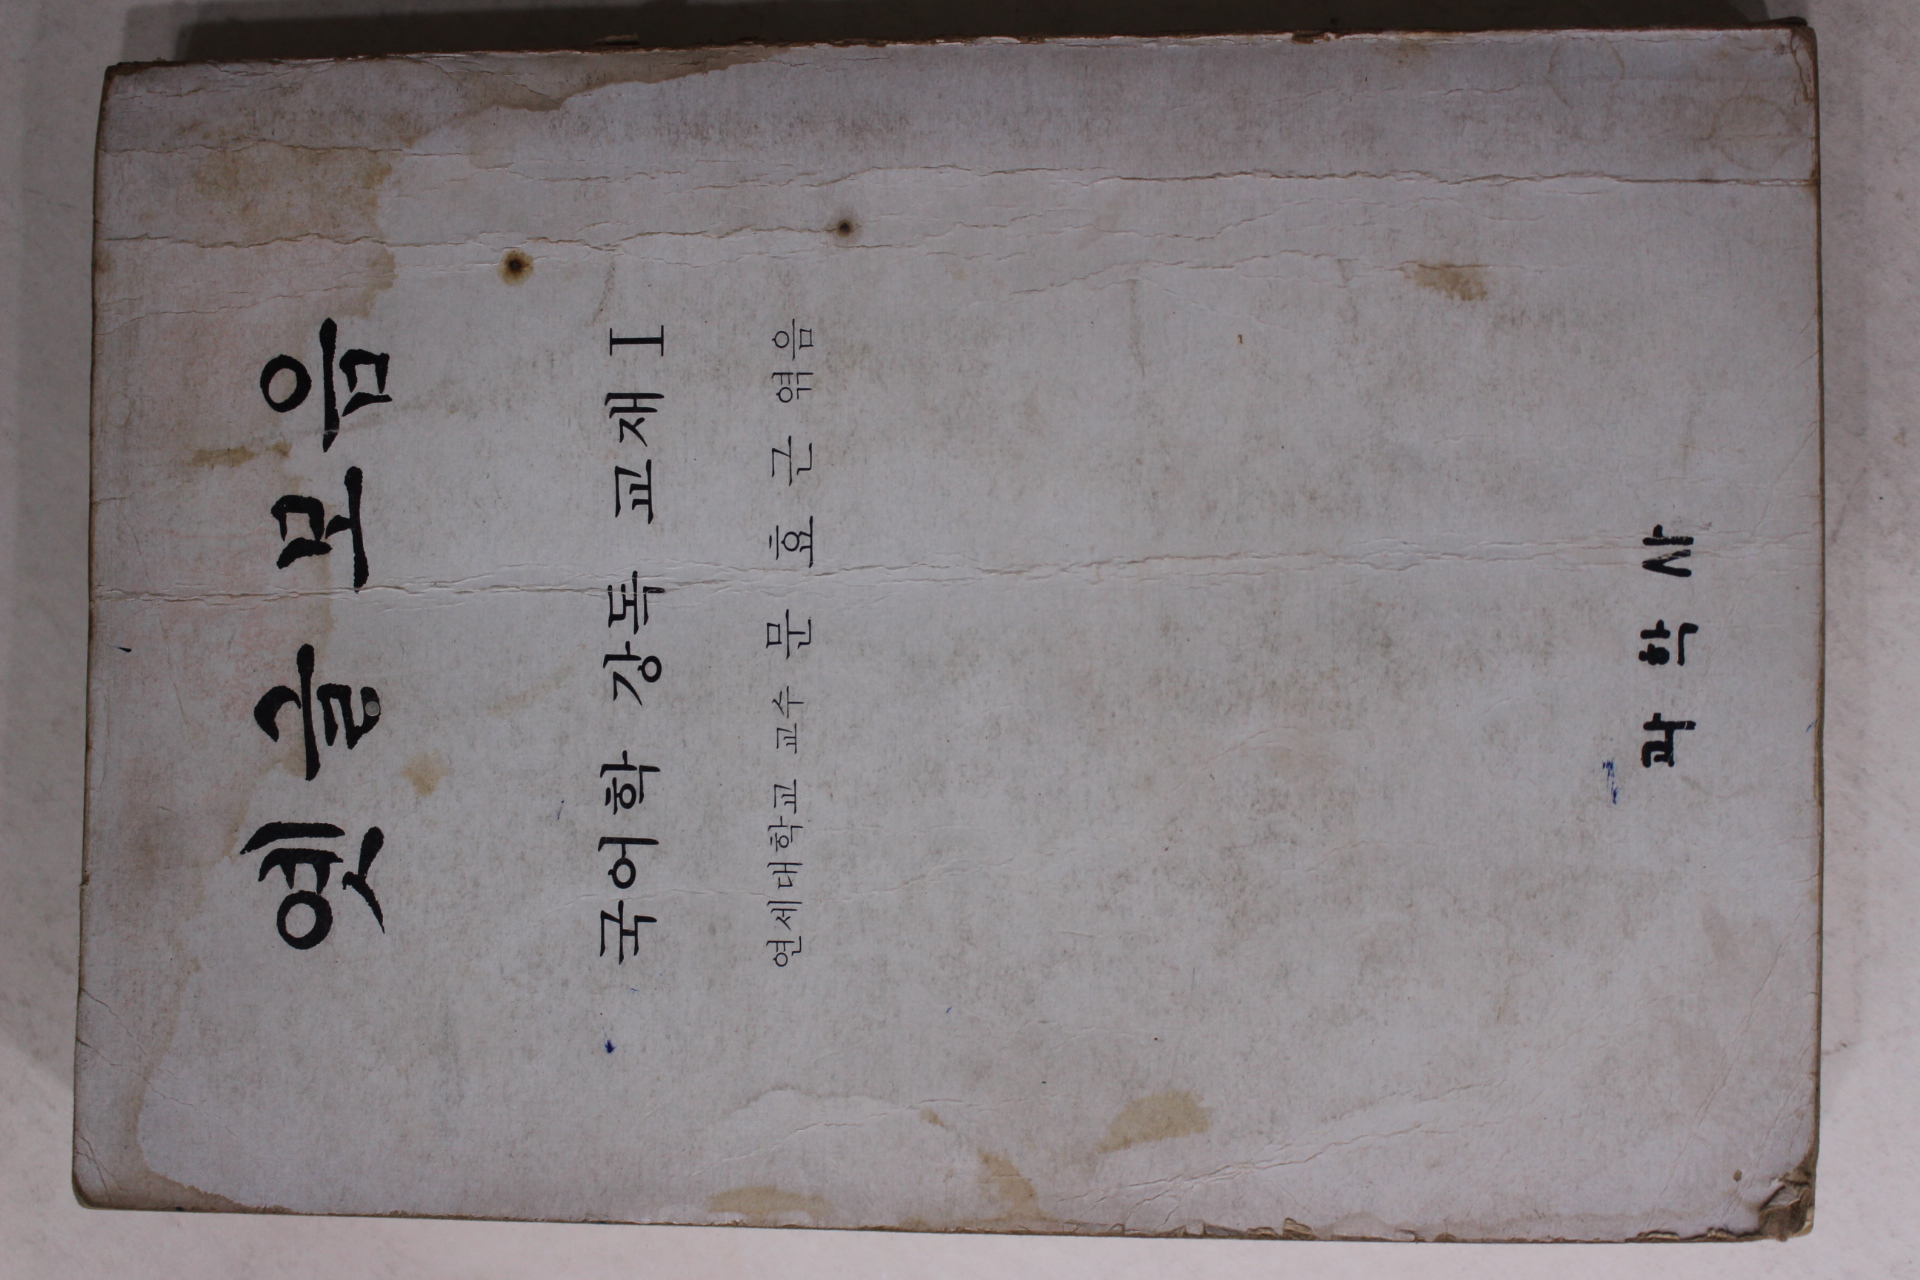 옛글 모음
국어학 강독 교재 I
연세대학교 교수 문 효 근 엮음
과 학 사